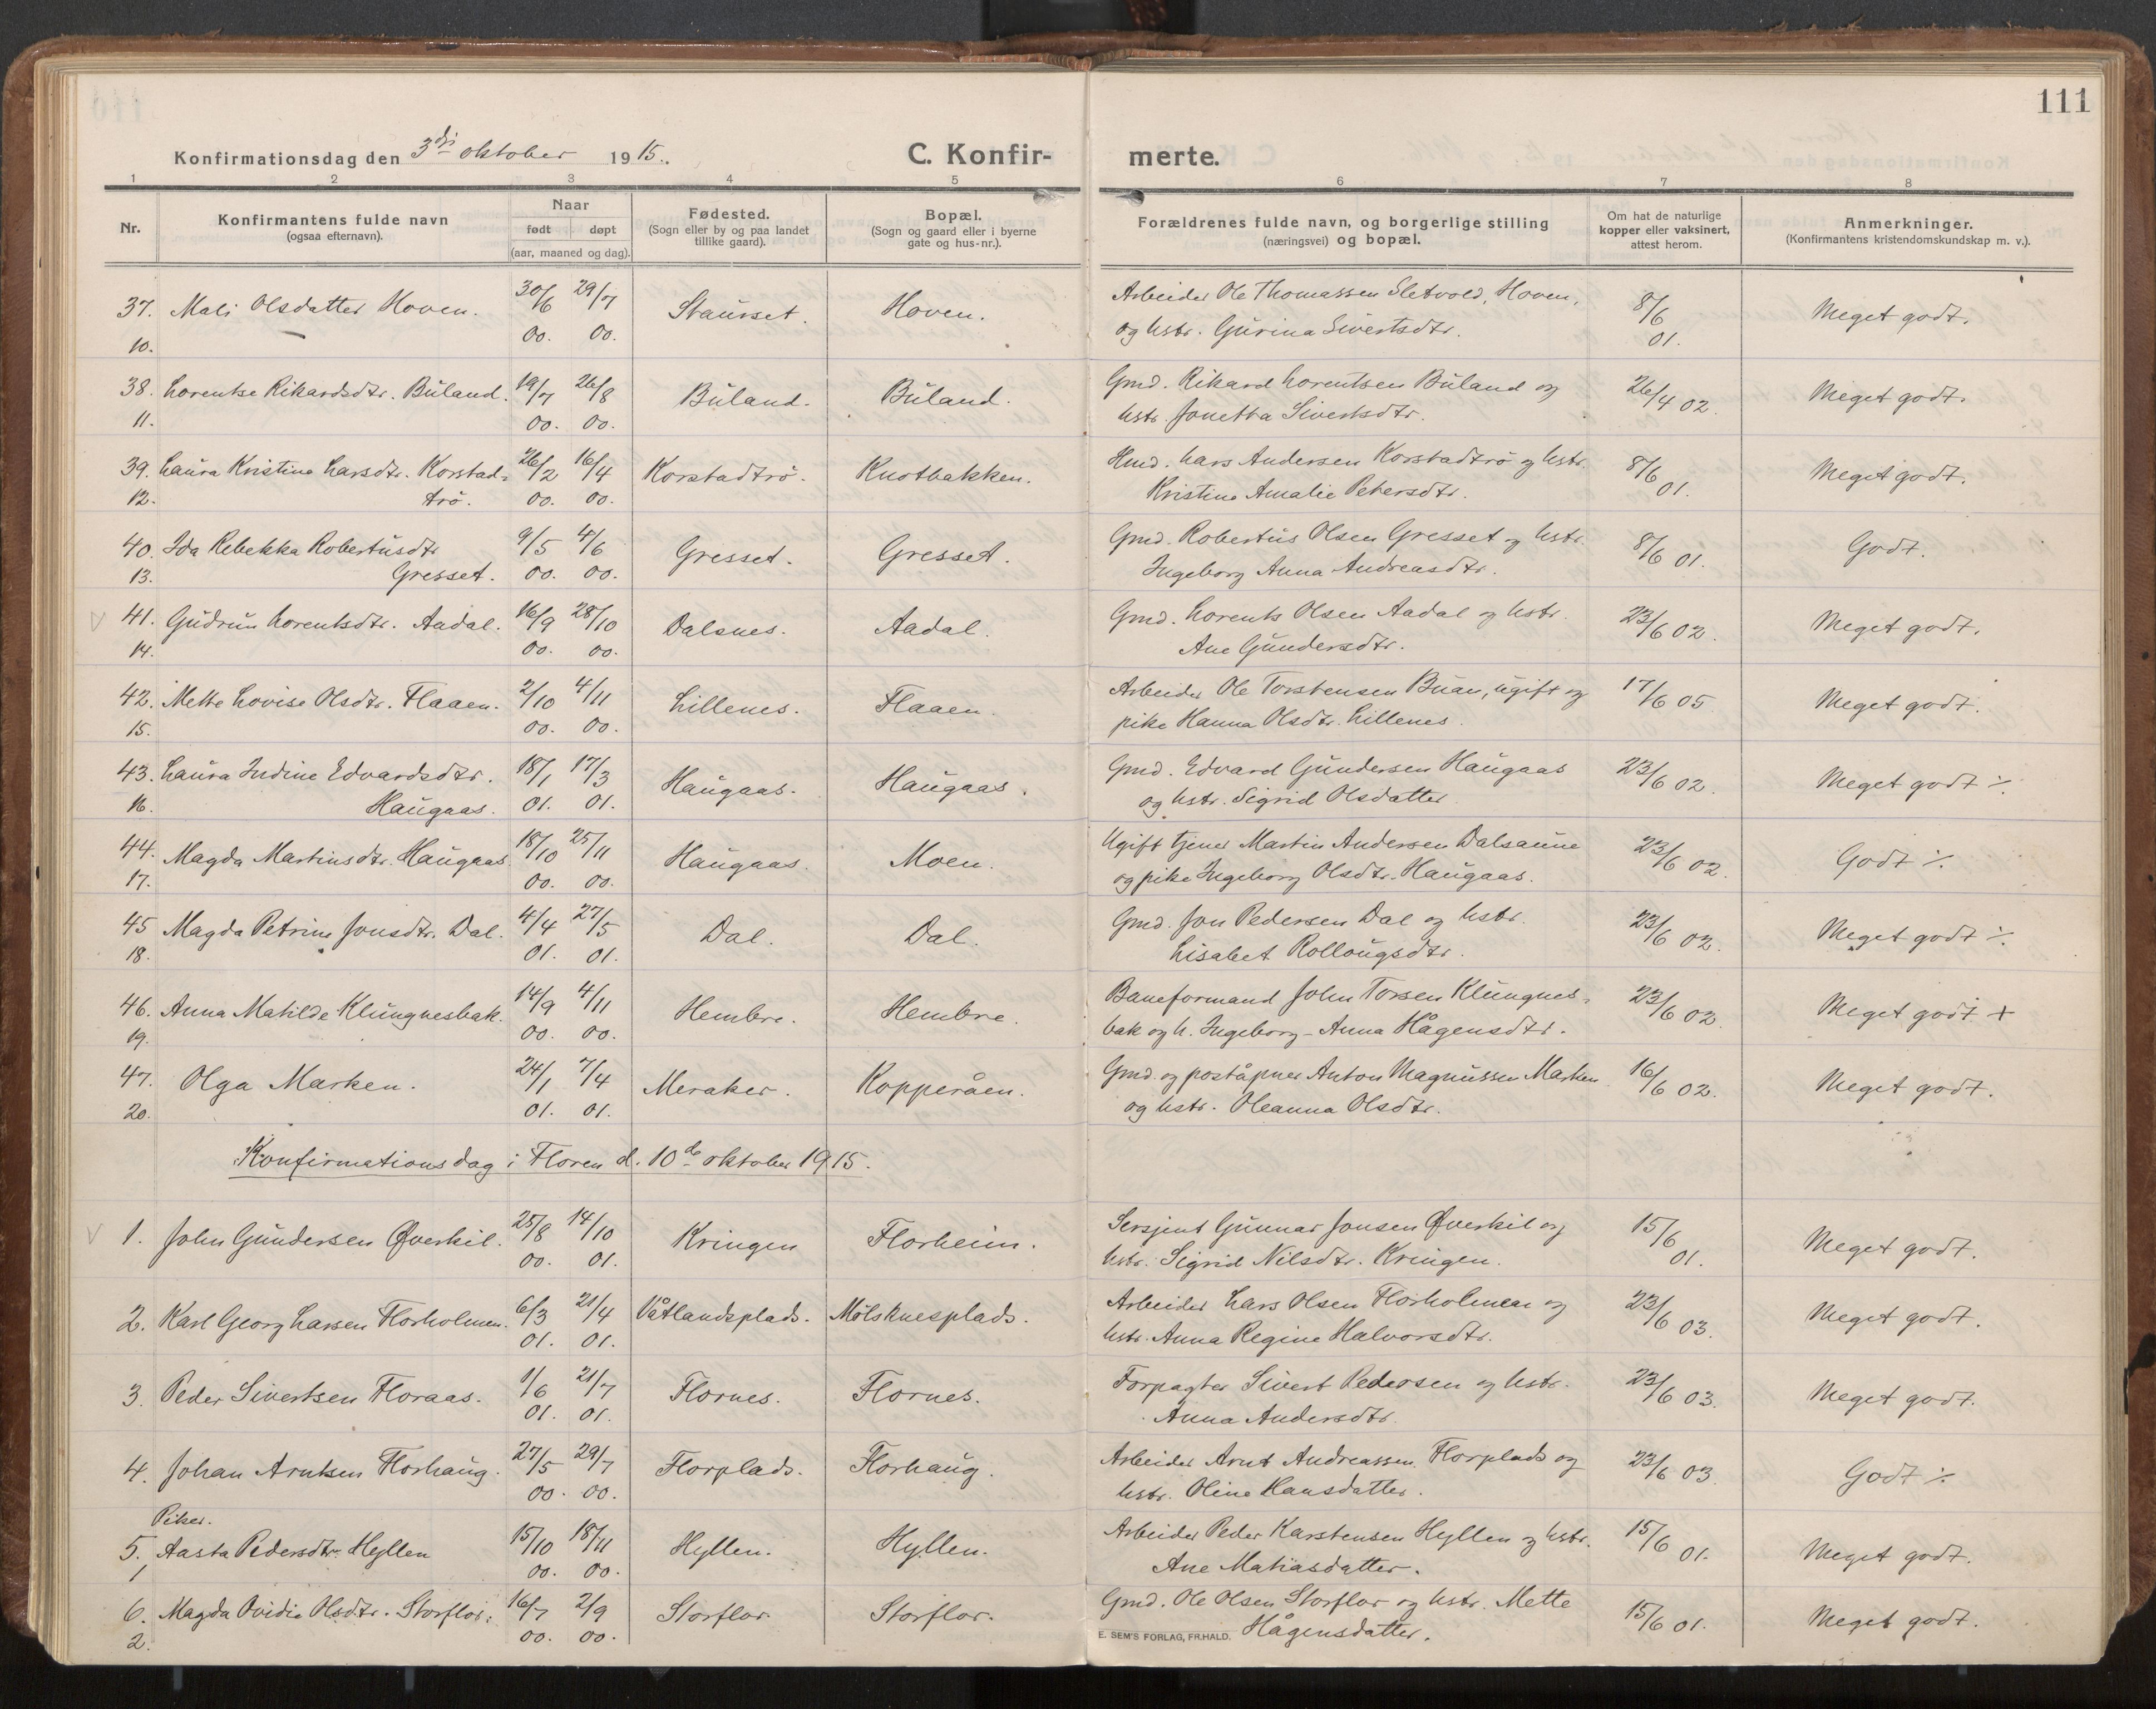 111
Konfirmationsdag den 3die oktober 1915.
C. Konfir- merte.
1 2 3 4 5 6 7 8
Nr.
Konfirmantens fulde navn
(ogsaa efternavn).
Naar
født døpt
(aar, maaned og dag).
Fødested.
(Sogn eller by og paa landet
tillike gaard).
Bopæl.
(Sogn og gaard eller i byerne
gate og hus-nr.).
Forældrenes fulde navn, og borgerlige stilling
(næringsvei) og bopæl.
Om hat de naturlige
kopper eller vaksinert,
attest herom.
Anmerkninger.
(Konfirmantens kristendomskundskap m. v.).
37. Mali Olsdatter Hoven. 30/6 29/7 Staurset. Hoven. Arbeider Ole Thomassen Sletvold, Hoven, 8/6 Meget godt.
10. 00. 00. og hstr. Gurina Sivertsdtr. 01.
38. Lorentse Rikardsdtr. Buland. 19/7 26/8 Buland. Buland. Gmd. Rikard Lorentsen Buland og 26/4 02. Meget godt.
11. 00. 00. hstr. Jonetta Sivertsdtr.
39. Laura Kristine Larsdtr. Korstad- 26/2 16/4 Korstadtrö. Knotbakken. Hmd. Lars Andersen Korstadtrö og hstr. 8/6 Meget godt.
12. trö. 00. 00. Kristine Amalie Petersdtr. 01.
40. Ida Rebekka Robertusdtr 9/5 4/6 Gresset. Gresset. Gmd. Robertus Olsen Gresset og hstr. 8/6 01. Godt.
13. Gresset. 00. 00. Ingeborg Anna Andreasdtr.
V 41. Gudrun Lorentsdtr. Aadal. 16/9 28/10 Dalsnes. Aadal. Gmd. Lorents Olsen Aadal og hstr. 23/6 02. Meget godt.
14. 00. 00. Ane Gundersdtr.
42. Mette Lovise Olsdtr. Flaaen. 2/10 4/11 Lillenes. Flaaen. Arbeider Ole Torstensen Buan, ugift og 17/6 05 Meget godt.
15. 00. 00. pike Hanna Olsdtr. Lillenes.
43. Laura Indine Edvardsdtr. 18/1 17/3 Haugaas. Haugaas. Gmd. Edvard Gundersen Haugaas 23/6 02. Meget godt ./.
16. Haugaas. 01. 01. og hstr. Sigrid Olsdatter
44. Magda Martinsdtr. Haugaas. 18/10 25/11 Haugaas. Moen. Ugift tjener Martin Andersen Dalsaune 23/6 02. Godt ./.
17. 00. 00. og pike Ingeborg Olsdtr. Haugaas.
45 Magda Petrine Jonsdtr. Dal. 4/4 27/5 Dal. Dal. Gmd. Jon Pedersen Dal og hstr. 23/6 02. Meget godt ./.
18. 01. 01. Lisabet Rollougsdtr.
46. Anna Matilde Klungnesbak. 14/9 4/11 Hembre. Hembre. Baneformand John Torsen Klungnes- 23/6 02 Meget godt +
19. 00. 00. bak og h. Ingeborg-Anna Hågensdtr.
47. Olga Marken. 24/1 7/4 Meraker. Kopperåen. Gmd. og poståpner Anton Magnussen Marken 16/6 02. Meget godt.
20. 01. 01. og hstr. Oleanna Olsdtr.
Konfirmationsdag i Floren d. 10de oktober 1915.
V 1. John Gundersen Øverkil. 25/8 14/10 Kringen Florheim. Sersjent Gunnar Jonsen Øverkil og 15/6 Meget godt.
00. 01. hstr. Sigrid Nilsdtr. Kringen. 01.
2. Karl Georg Larsen Florholmen. 6/3 21/4 Våtlandsplads. Mölsknesplads. Arbeider Lars Olsen Florholmen og 23/6 03. Meget godt.
01. 01. hstr. Anna Regine Halvorsdtr.
3. Peder Sivertsen Floraas. 1/6 21/7 Flornes. Flornes. Forpagter Sivert Pedersen og hstr. 23/6 03. Meget godt.
01. 01. Anna Andersdtr.
4. Johan Arntsen Florhaug. 27/5 29/7 Florplads. Florhaug. Arbeider Arnt Andreassen Florplads og 23/6 03. Godt ./.
00. 00. hstr. Oline Hansdatter.
Piker.
5. Aasta Pedersdtr. Hyllen 15/10 18/11 Hyllen. Hyllen. Arbeider Peder Karstensen Hyllen og hstr. 15/6 01. Meget godt.
1 00. 00. Ane Matiasdatter.
6. Magda Ovidie Olsdtr. Storflor. 16/7 2/9 Storflor. Storflor. Gmd. Ole Olsen Storflor og hstr. Mette 15/6 01. Meget godt.
2. 00. 00. Hågensdatter.
E. SEM'S FORLAG, FR.HALD.